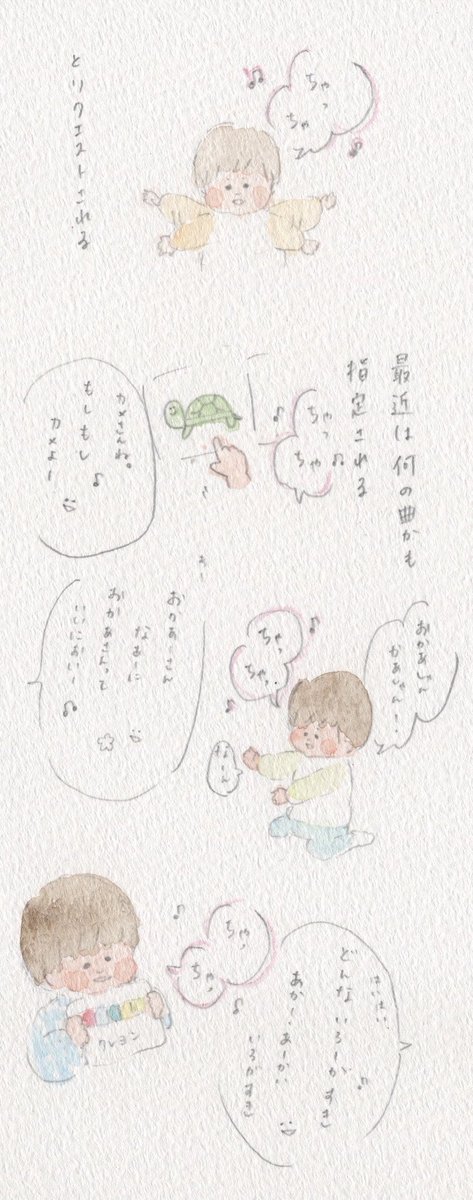 ちゃっ
ちゃ
とリクエストされる
最近は何の曲かも
指定される
ちゃっ
ちゃ
カメさんね。
もしもし
カメよー
おかあしゃん
かあしゃんー
ちゃっ
ちゃっ
おかあーさん
なあーに
おかあさんって
いいにおいー
はいはい
どんないろーがすき
あかー、あーかい
いろがすき
ちゃっ
ちゃっ
クレヨン